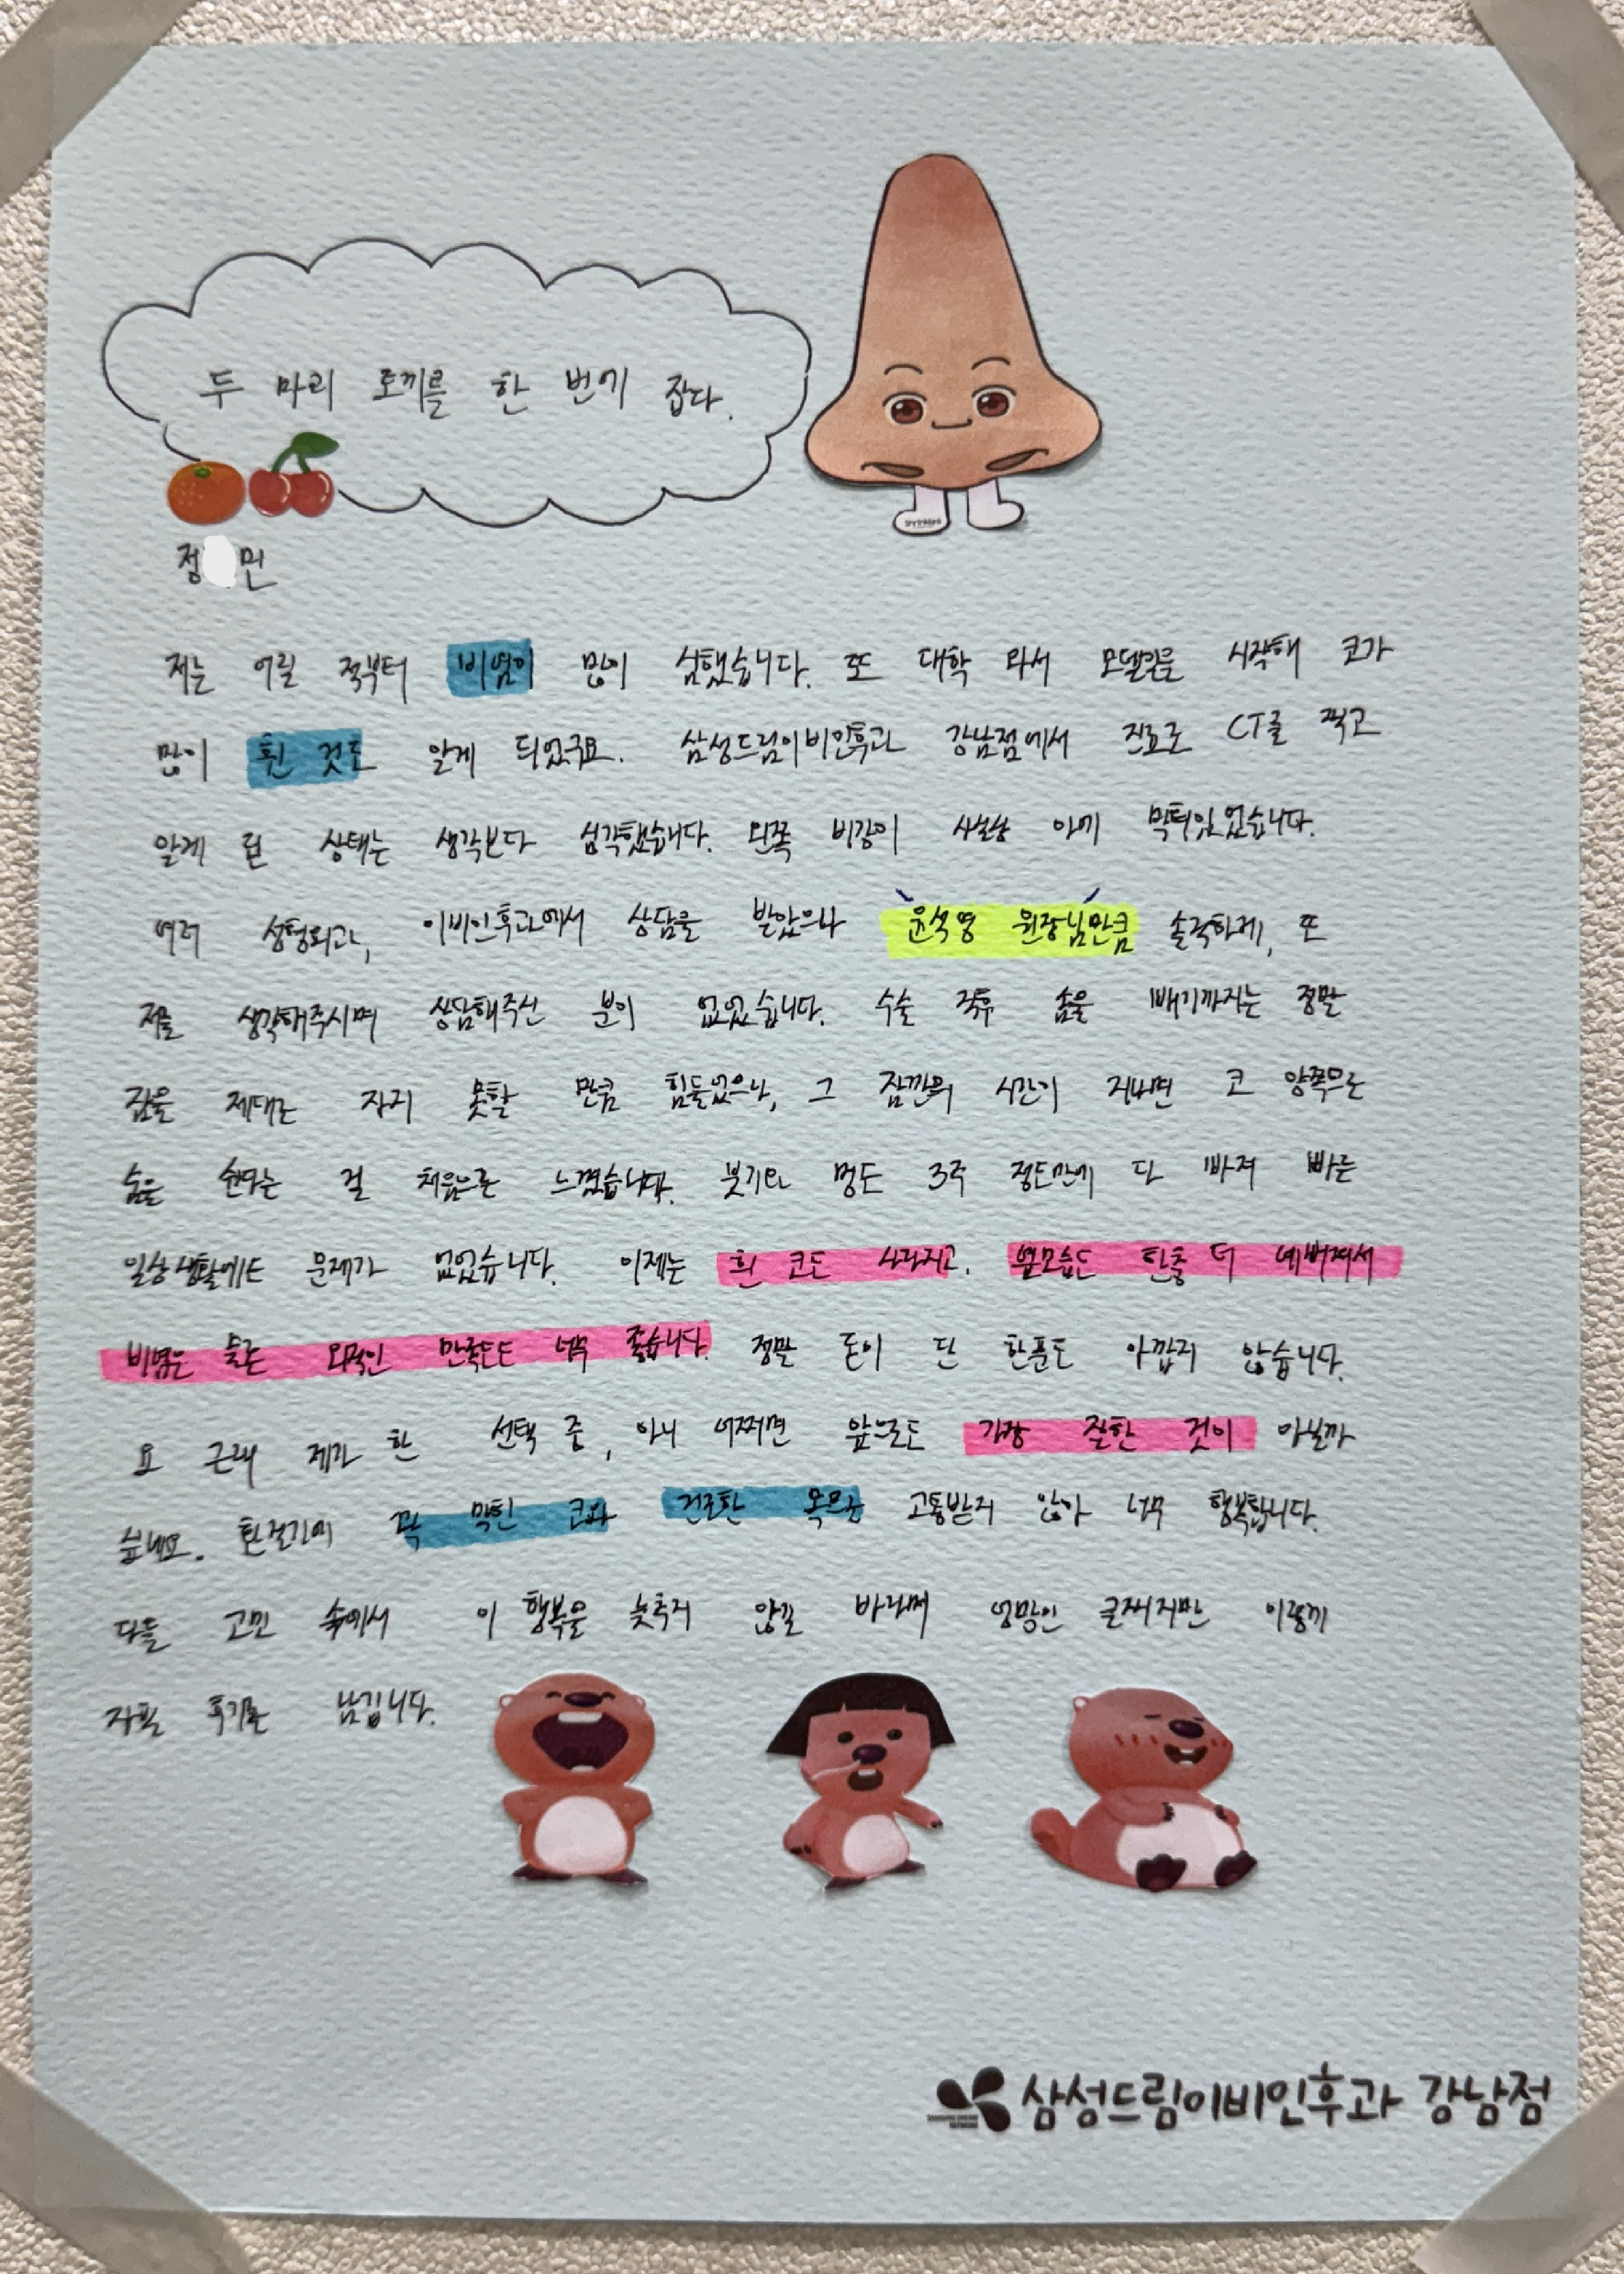 두 마리 토끼를 한 번에 잡다.
정 민
저는 어릴 적부터 비염이 많이 심했습니다. 또 대학 와서 모델일을 시작해 코가
많이 휜 것도 알게 되었구요. 삼성드림이비인후과 강남점에서 진료로 CT를 찍고
알게 된 상태는 생각보다 심각했습니다. 왼쪽 비강이 사실상 아예 막혀있었습니다.
여러 성형외과, 이비인후과에서 상담을 받았으나 윤석영 원장님만큼 솔직하게, 또
저를 생각해주시며 상담해주신 분이 없었습니다. 수술 직후 솜을 빼기까지는 정말
잠을 제대로 자지 못할 만큼 힘들었으나, 그 잠깐의 시간이 지나면 코 양쪽으로
숨을 쉰다는 걸 처음으로 느꼈습니다. 붓기와 멍도 3주 정도만에 다 빠져 빠른
일상생활에도 문제가 없었습니다. 이제는 휜 코도 사라지고, 옆모습도 한층 더 예뻐져서
비염은 물론 외적인 만족도도 너무 좋습니다. 정말 돈이 단 한푼도 아깝지 않습니다.
요 근래 제가 한 선택 중, 아니 어쩌면 앞으로도 가장 잘한 것이 아닐까
싶네요. 환절기에 꽉 막힌 코와 건조한 목으로 고통받지 않아 너무 행복합니다.
다들 고민 속에서 이 행복을 늦추지 않길 바라며 엉망인 글씨지만 이렇게
자필 후기를 남깁니다.
삼성드림이비인후과 강남점